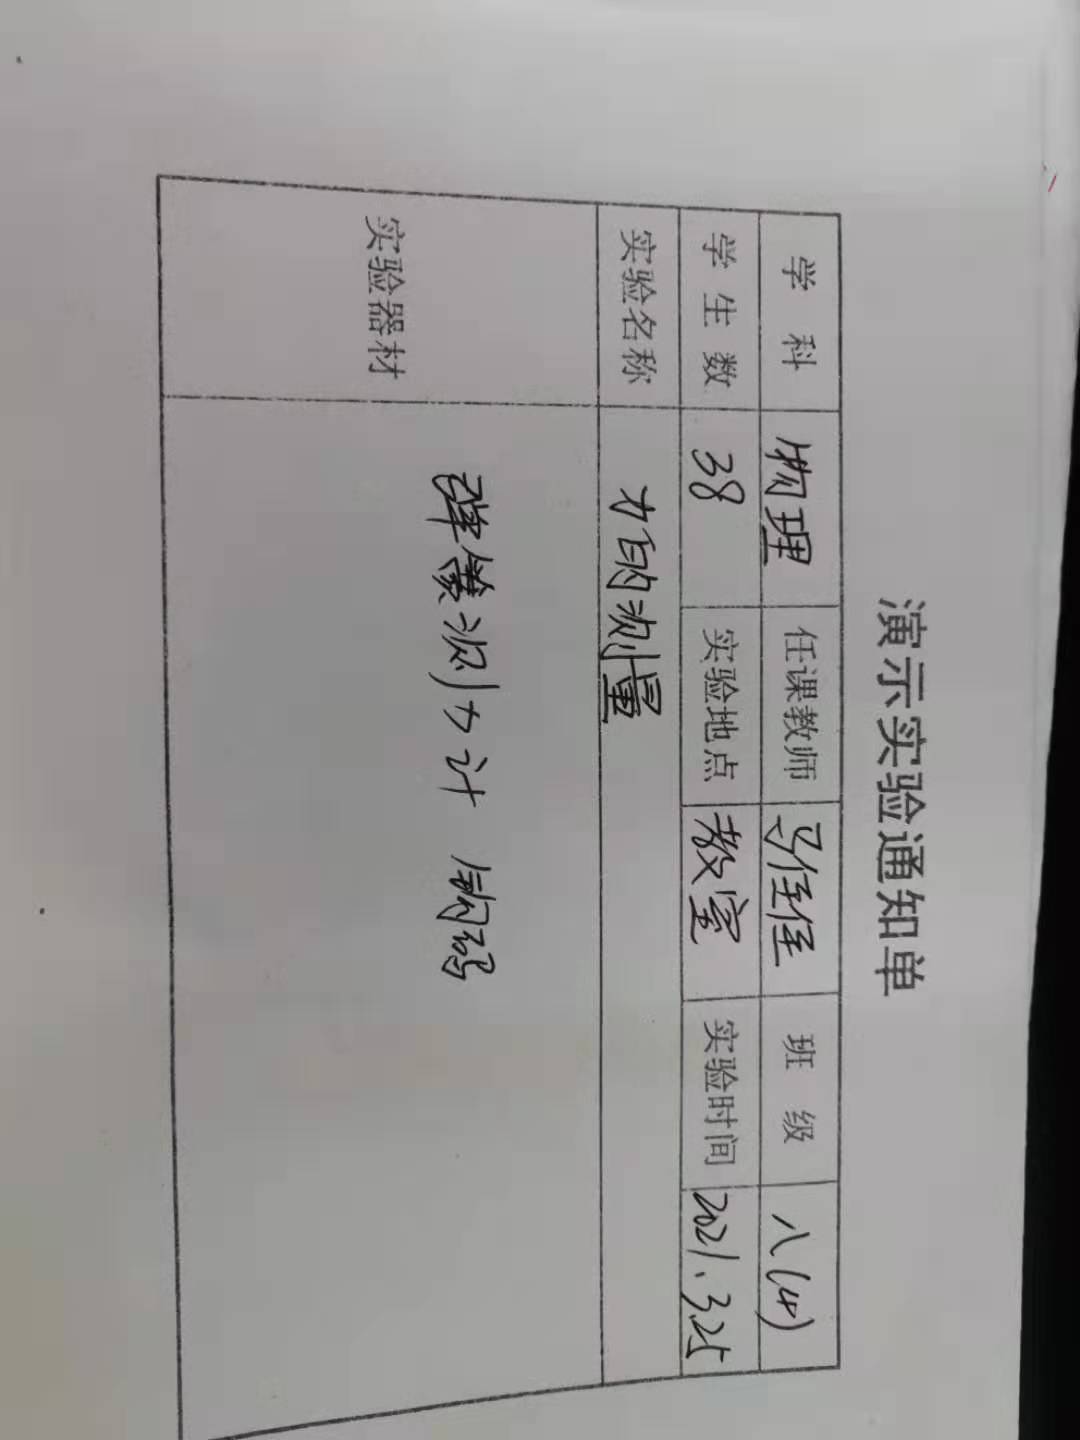 演示实验通知单
学科 物理 任课教师 马佳佳 班级 八(4)
学生数 38 实验地点 教室 实验时间 2021.3.25
实验名称 力的测量
实验器材 弹簧测力计 钩码